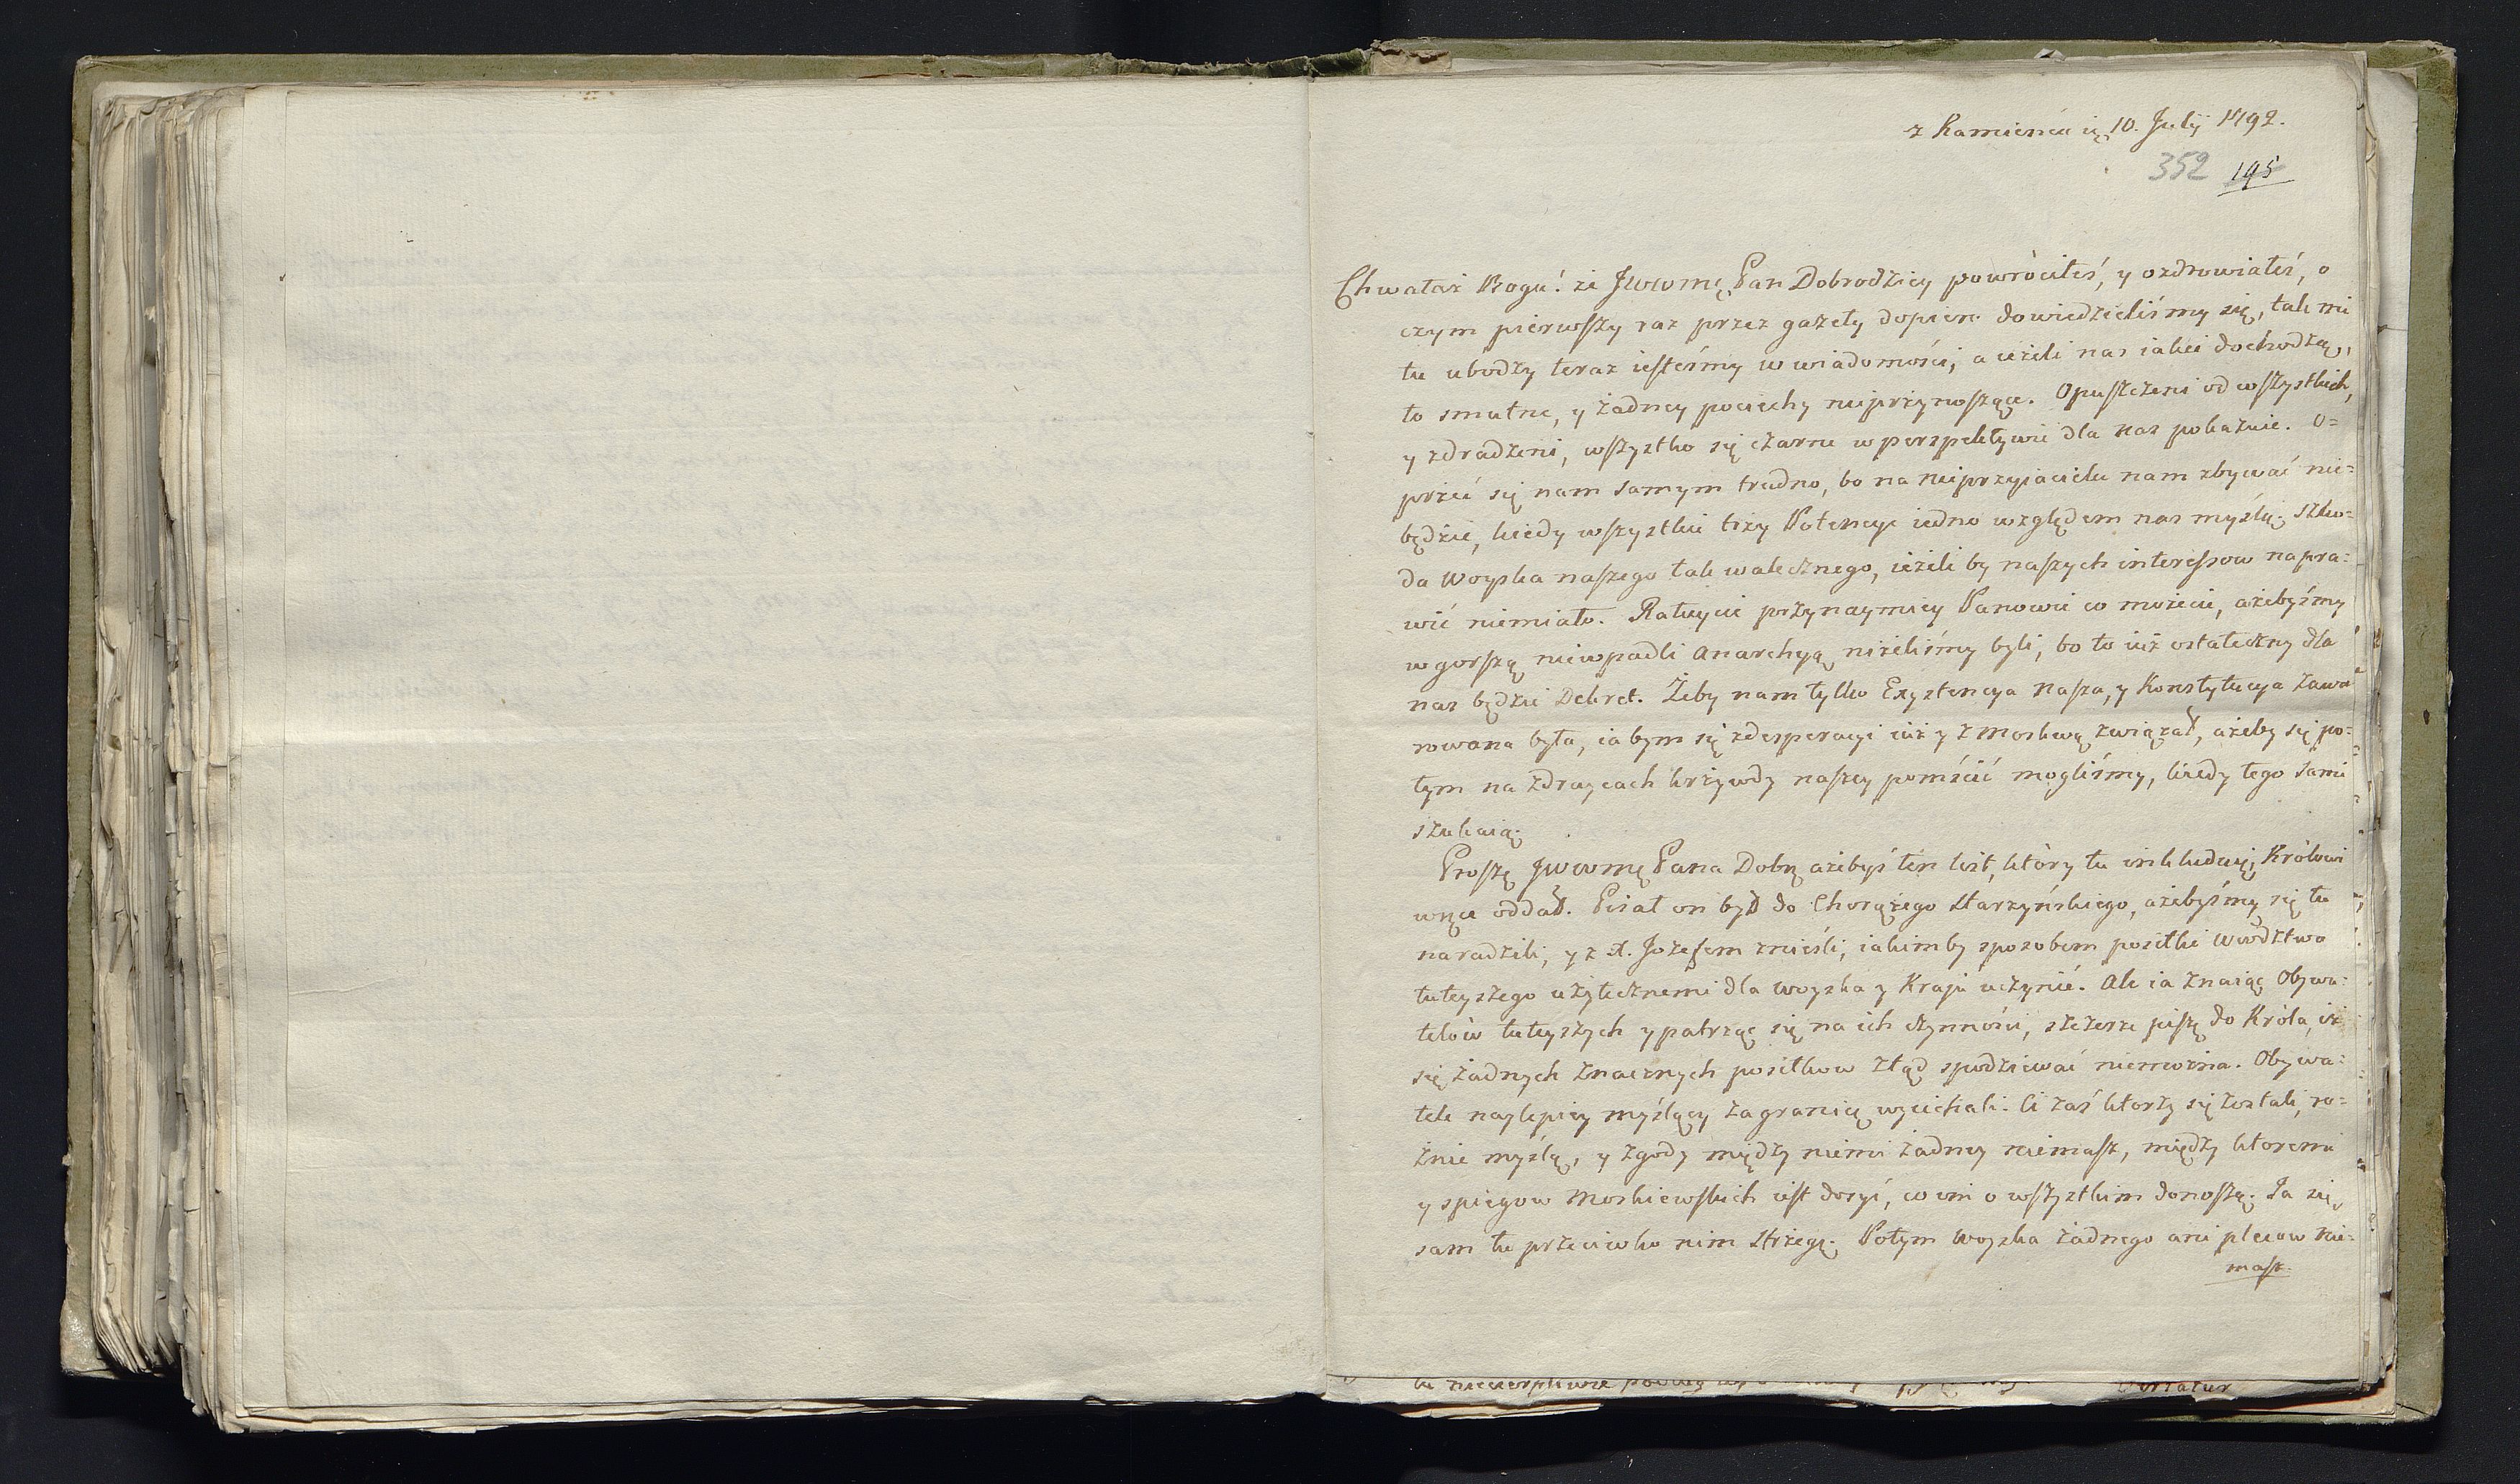 z Kamieńca ię 10. Julÿ 1792.
352 195
Chwałaż Bogu! że Jwwmę Pan Dobrodziey powróciłeś, y ozdrowiałeś, o
czym pierwszy raz przez gazety dopiero dowiedzieliśmy się, tak mi
tu ubodzy teraz iesteśmy w wiadomości, a ieżeli nas iakie dochodzą,
to smutne, y żadney pociechy nieprzynoszące. Opuszczeni od wszystkich,
y zdradzeni, wszystko się czarne w perspektywie dla nas pokazuie. O=
przeć się nam samym trudno, bo na nieprzyiacielu nam zbywać nie=
będzie, kiedy wszystkie trzy Potencye iedno względem nas myślą; szko=
da Woyska naszego tak walecznego, ieżeli by naszych interessow napra=
wić niemiało. Ratuycie przynaymiey Panowie co możecie, ażebyśmy
w gorszą niewpadli Anarchyą, niżeliśmy byli, bo to iuż ostateczny dla
nas będzie Dekret. Żeby nam tylko Exystencya nasza, y Konstytucya zawa
rowana była, ia bym się z desperacyi iuż y z Moskwą związał, ażeby się po=
tym na zdraycach krzywdy naszey pomścić mogliśmy, kiedy tego sami
szukaią.
Proszę Jwwmę Pana Dobrę ażebyś ten list, który tu inkluduię, Królowi
w ręce oddał. Pisał on był do Chorążego Starzyńskiego, ażebyśmy się tu
naradzili, y z X. Jozefem znieśli, iakimby sposobem posiłki Wwdztwa
tuteyszego użytecznemi dla Woyska y Kraju uczynić. Ale ia znaiąc Obywa=
telów tuteyszych y patrząc się na ich czynności, szczerze piszę do Króla, iż
się żadnych znacznych posiłkow ztąd spodziewać niemożna. Obywa=
tele naylepiey myślący zagranicę wyiechali. Ci zaś ktorzy się zostali, ro=
żnie myślą, y zgody między niemi żadney niemasz, między ktoremi
y spiegow Moskiewskich iest dosyć, co oni o wszystkim donoszą. Ja się
sam tu przeciwko nim strzegę. Potym Woyska żadnego ani plecow nie=
masz.
tu niecierpliwie
Vertatur